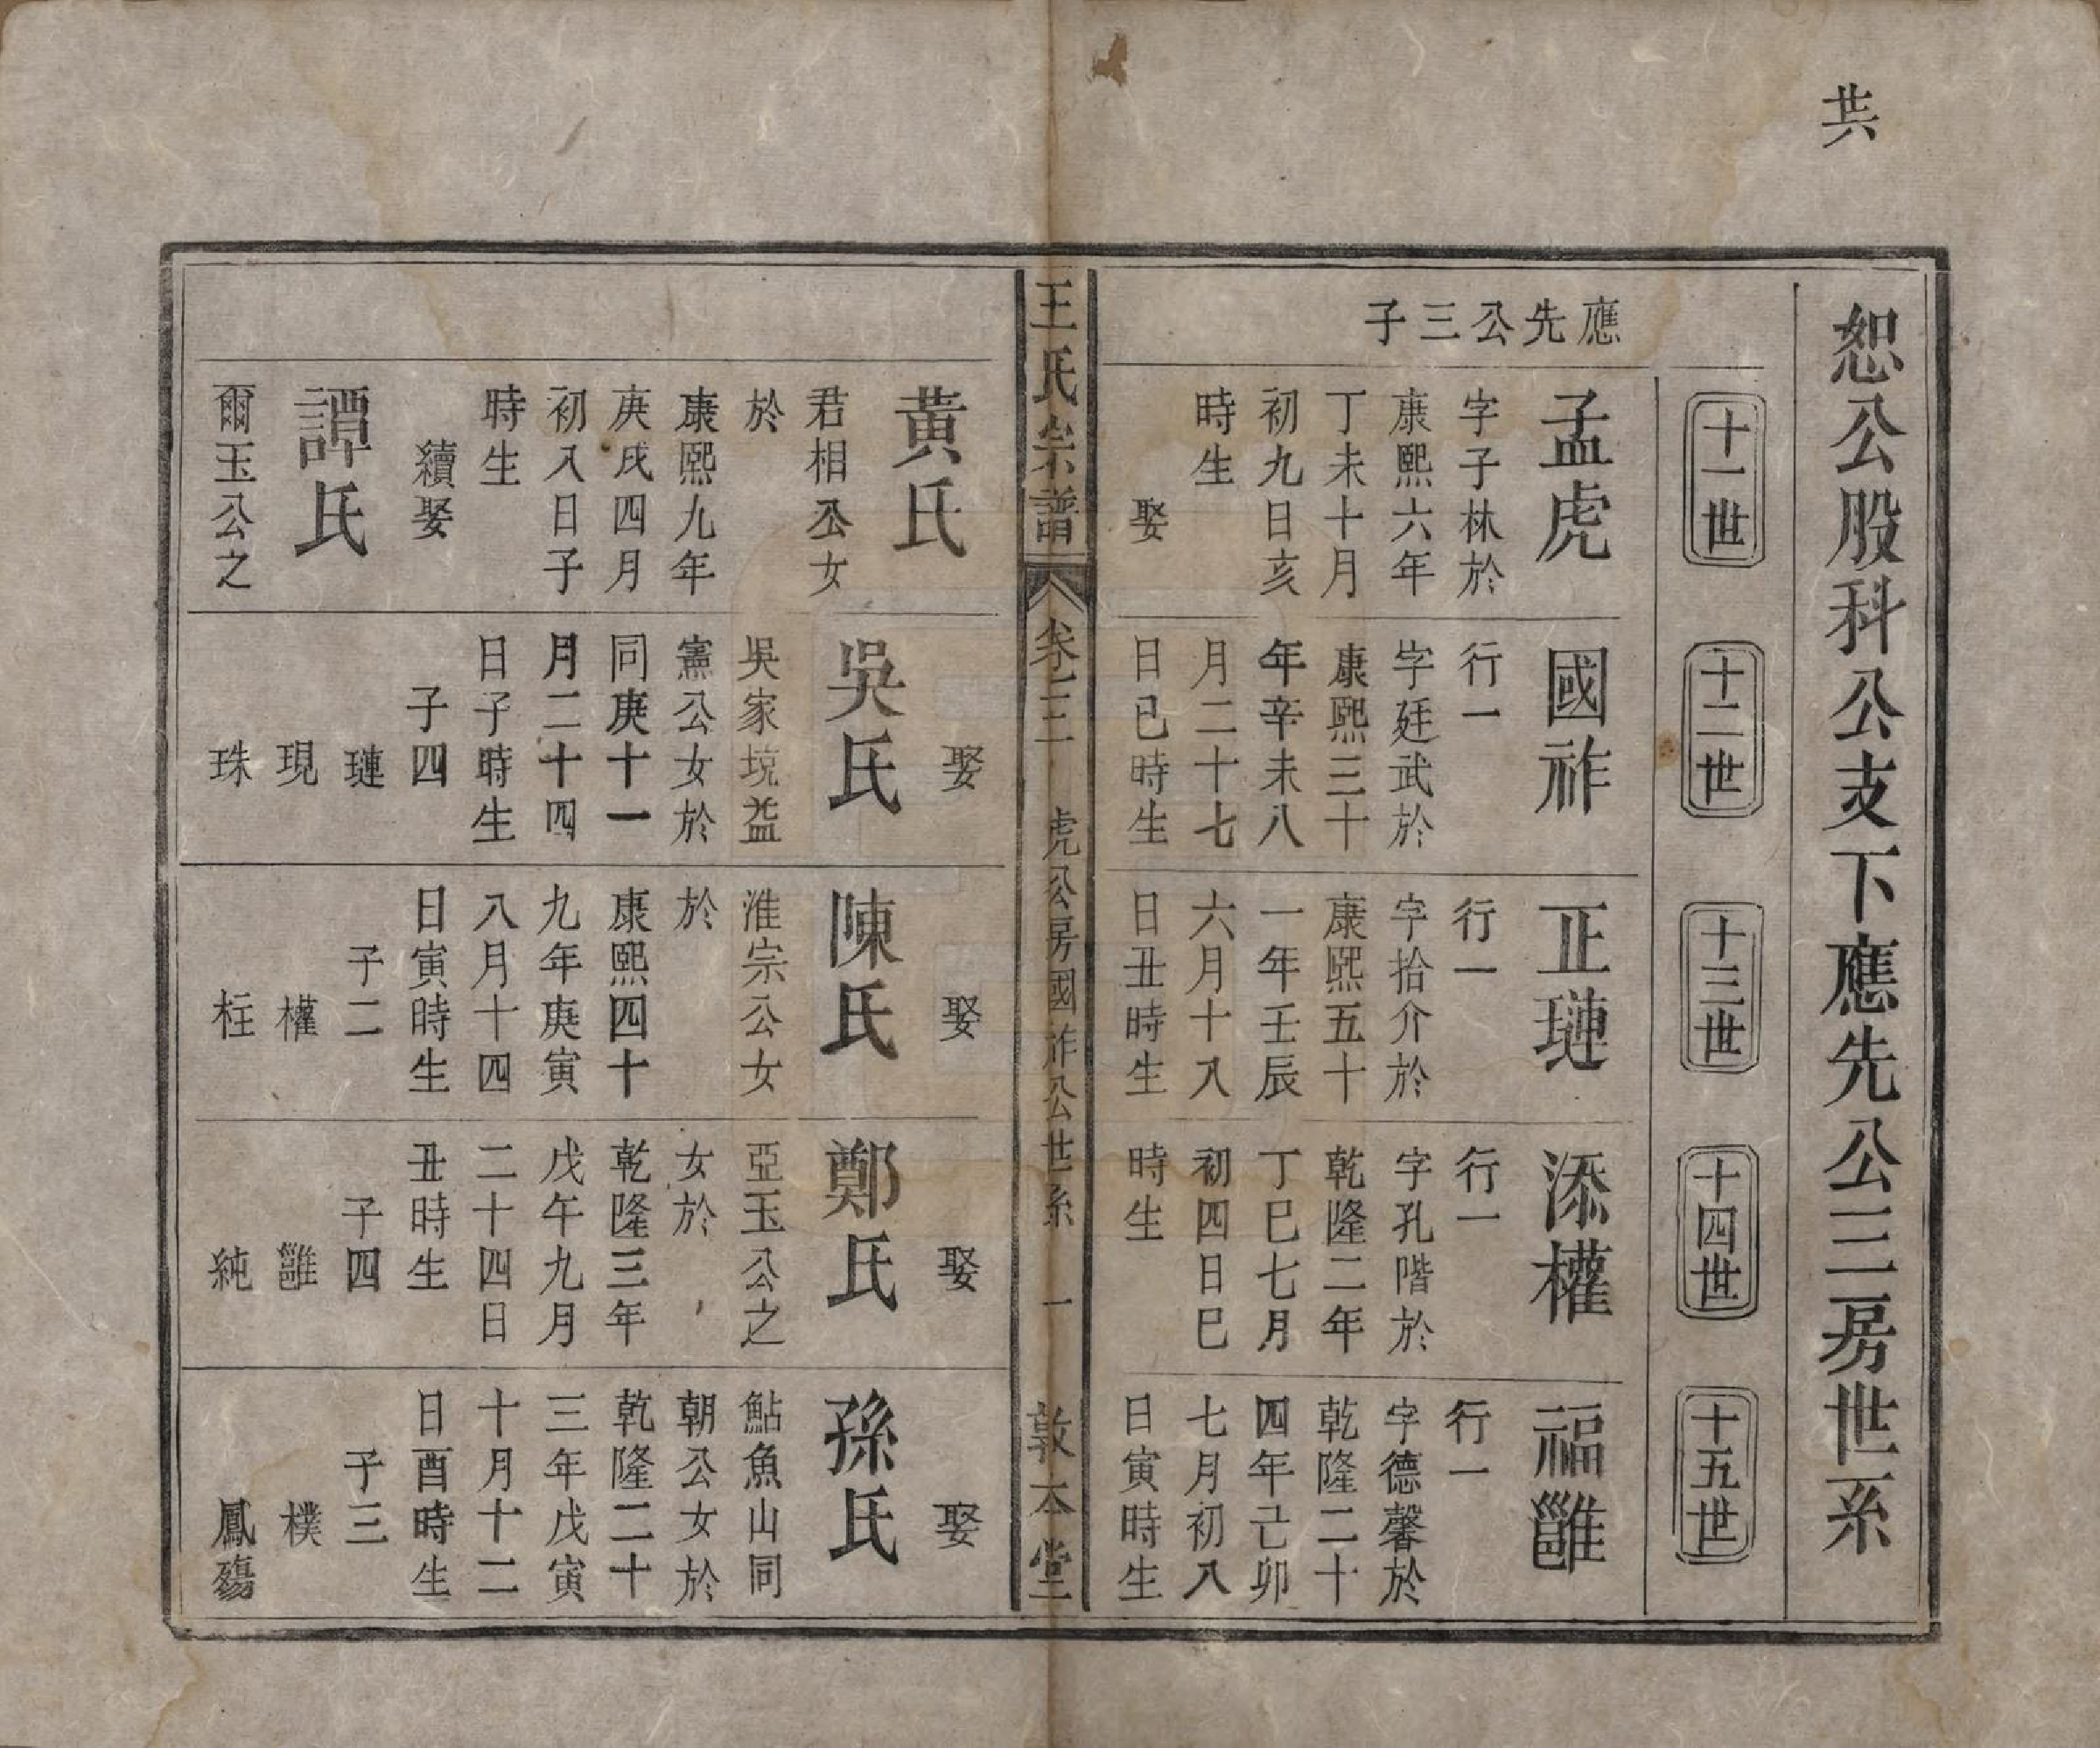 共
恕公股科公支下應先公三房世系
十一世
十二世
十三世
十四世
十五世
應先公三子
孟虎
字子林於
康熙六年
丁未十月
初九日亥
時生
娶
國祚
行一
字廷武於
康熙三十
年辛未八
月二十七
日已時生
正璉
行一
字拾介於
康熙五十
一年壬辰
六月十八
日丑時生
添權
行一
字孔階於
乾隆二年
丁巳七月
初四日巳
時生
福雝
行一
字德馨於
乾隆二十
四年己卯
七月初八
日寅時生
王氏宗譜
卷之二
虎公房國祚公世系
一
敦本堂
黄氏
君相公女
於
康熙九年
庚戌四月
初入日子
時生
續娶
譚氏
爾玉公之
娶
吳氏
吳家境益
憲公女於
同庚十一
月二十四
日子時生
子四
璉
現
珠
娶
陳氏
淮宗公女
於
康熙四十
九年庚寅
八月十四
日寅時生
子二
權
枉
娶
鄭氏
亞玉公之
女於
乾隆三年
戊午九月
二十四日
丑時生
子四
雝
純
娶
孫氏
鮎魚山同
朝公女於
乾隆二十
三年戊寅
十月十二
日酉時生
子三
樸
鳳殤